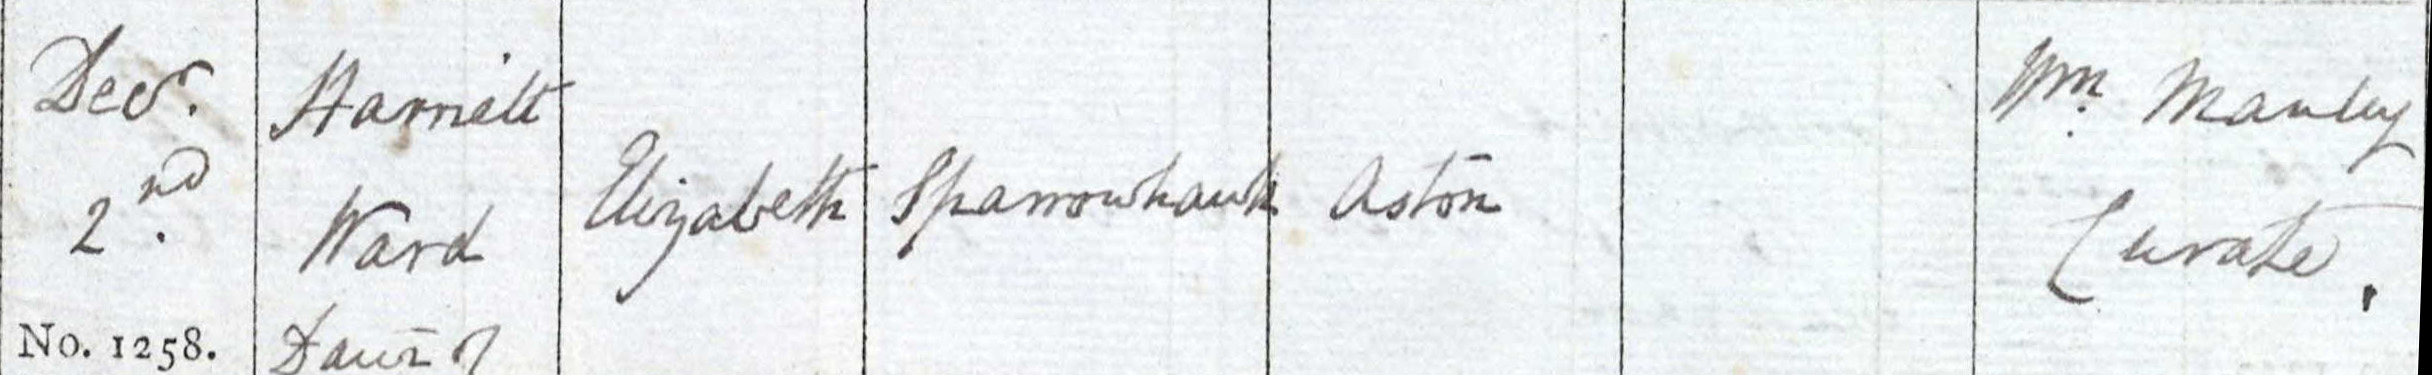 Decr.
2nd.
No. 1258.
Harriett
Ward
Daur of
Elizabeth
Sparrowhawk
Aston
Wm. Manley
Curate.